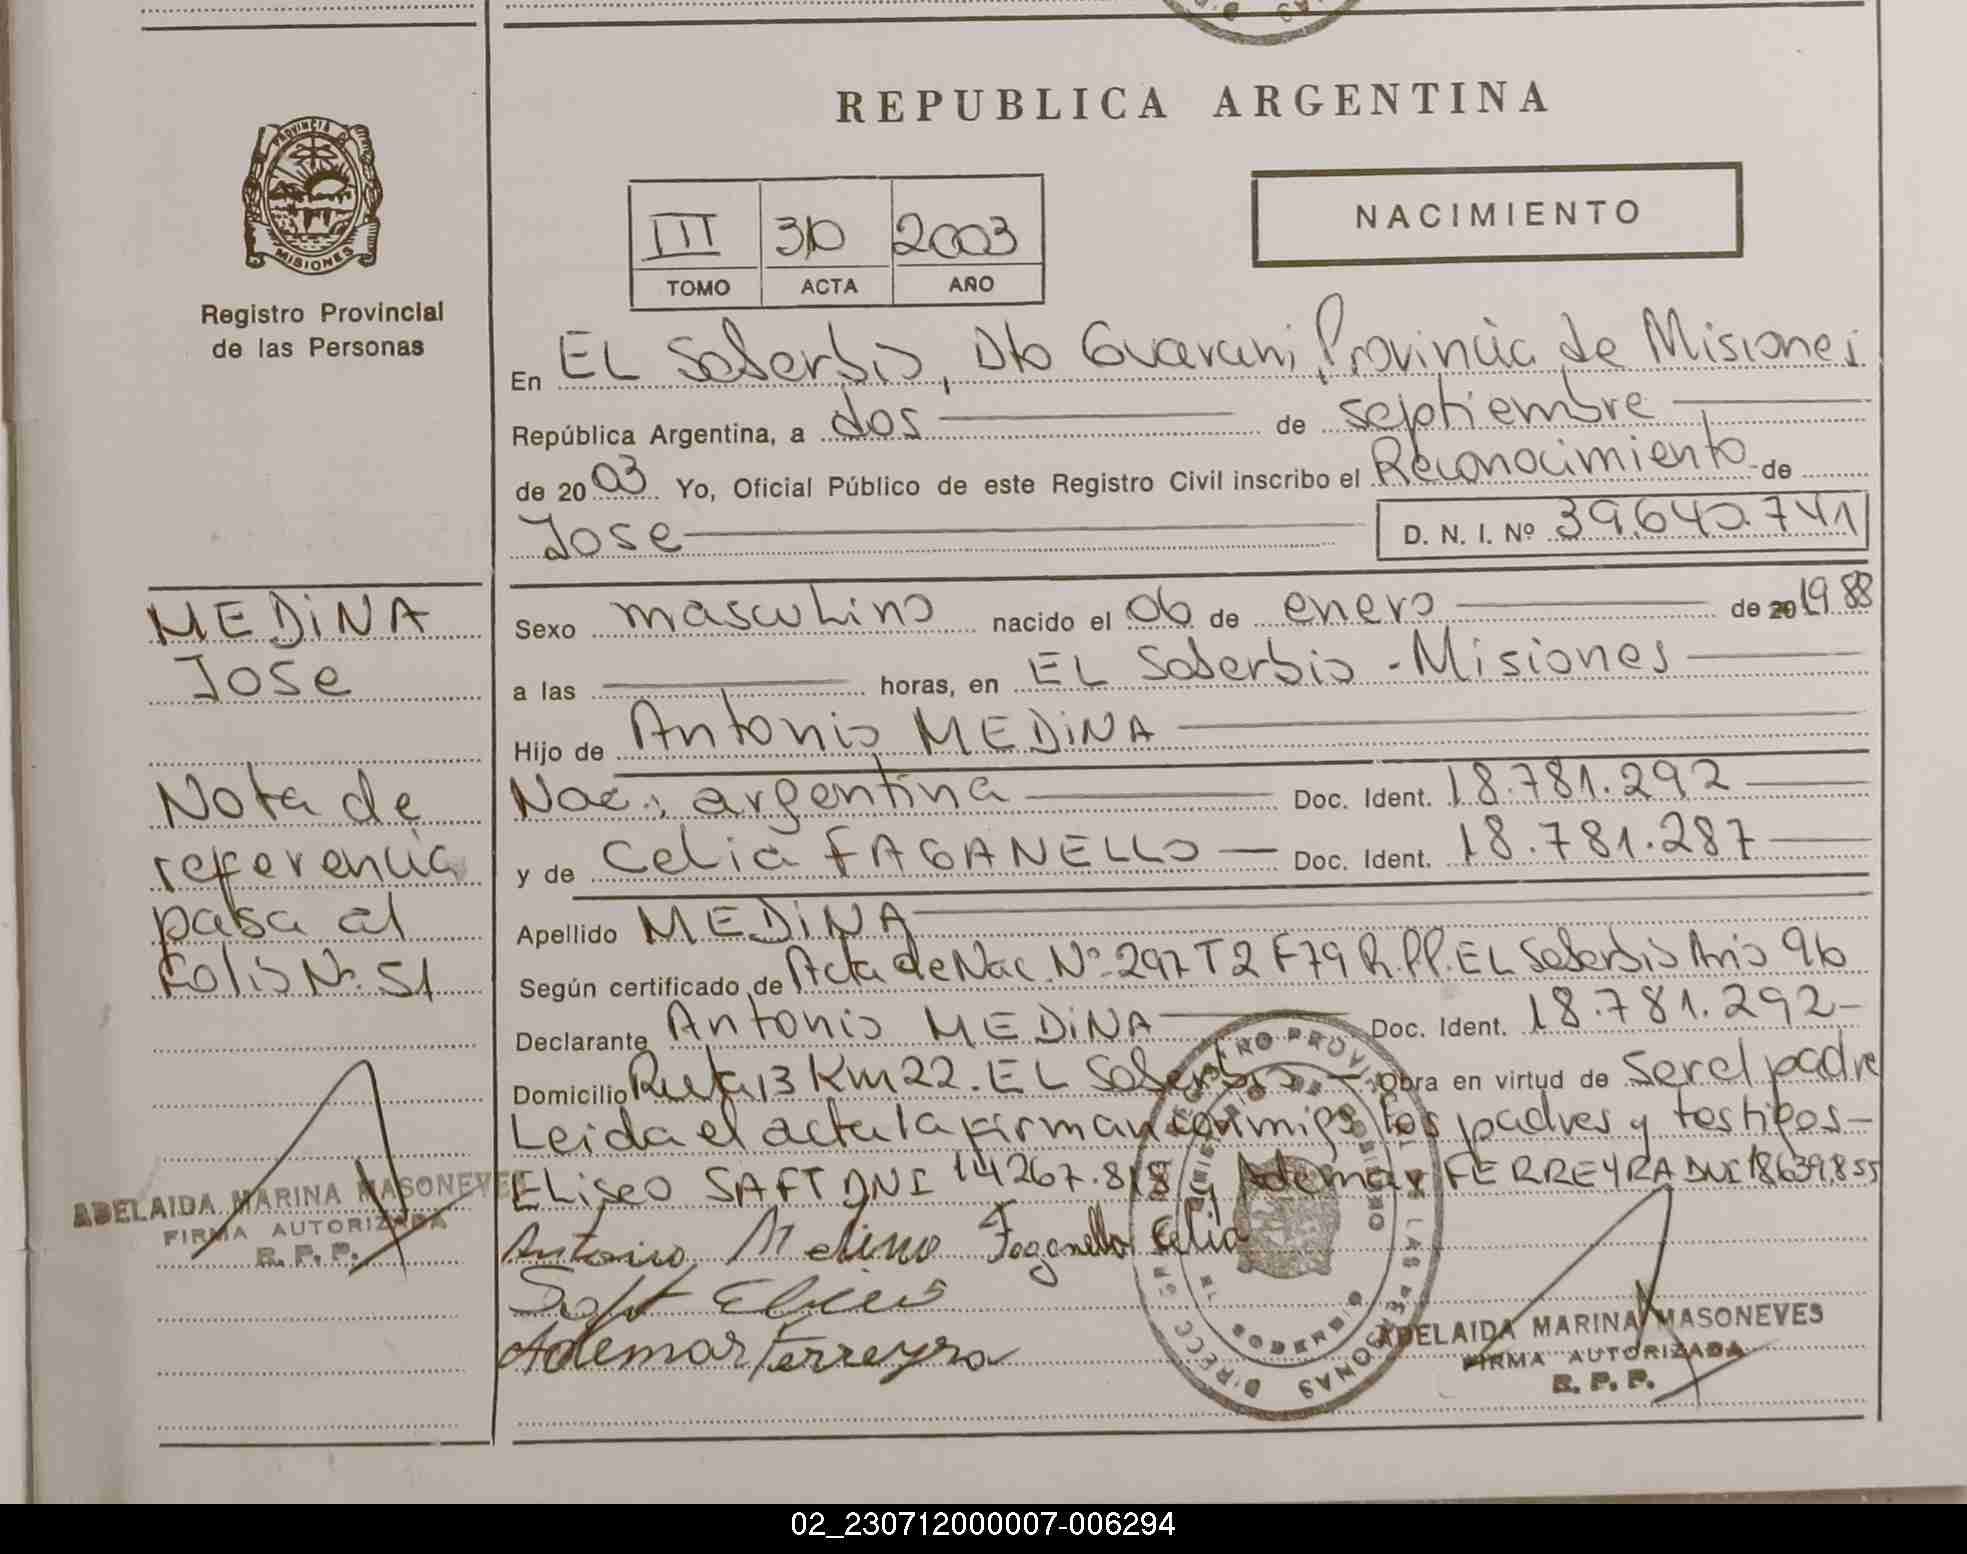 REPUBLICA ARGENTINA
PROVINCIA DE
MISIONES
Registro Provincial
de las Personas
III 310 2003
TOMO ACTA AÑO
NACIMIENTO
En EL Soberbio, Dto Guarani, Provincia de Misiones
República Argentina, a dos de septiembre
de 2003 Yo, Oficial Público de este Registro Civil inscribo el Reconocimiento de
Jose D. N. I. Nº 39.640.741
MEDINA
Jose
Nota de
referencia
pasa al
Folio Nº 51
ADELAIDA MARINA MASONEVES
FIRMA AUTORIZADA
R. P. P.
Sexo masculino nacido el 06 de enero de 20 1988
a las horas, en EL Soberbio - Misiones
Hijo de Antonio MEDINA
Nac.: argentina Doc. Ident. 18.781.292
y de Celia FAGANELLO Doc. Ident. 18.781.287
Apellido MEDINA
Según certificado de Acta de Nac. Nº 297 T2 F79 R.P.P. EL Soberbio Año 96
Declarante Antonio MEDINA Doc. Ident. 18.781.292
Domicilio Ruta 13 Km 22. EL Soberbio Obra en virtud de ser el padre
Leida el acta la firman conmigo los padres y testigos
ELiseo SAFT DNI 14267.818 y Ademar FERREYRA DNI 18.639.855
Antonio Medina Faganello Celia
Saft Eliseo
Ademar Ferreyra
ADELAIDA MARINA MASONEVES
FIRMA AUTORIZADA
R. P. P.
02_230712000007-006294